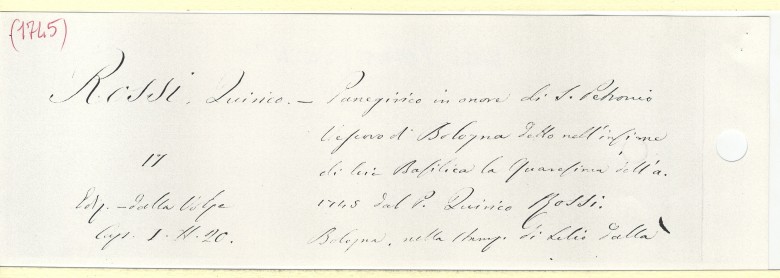 (1745)
Rossi, Quirico. — Panegirico in onore di S. Petronio
Vescovo di Bologna detto nell'insigne
17
di lui Basilica la Quaresima dell'a.
Esp. - dalla Volpe
1745 dal P. Quirico Rossi.
Cap. I. H. 20.
Bologna, nella Stamp. di Lelio dalla